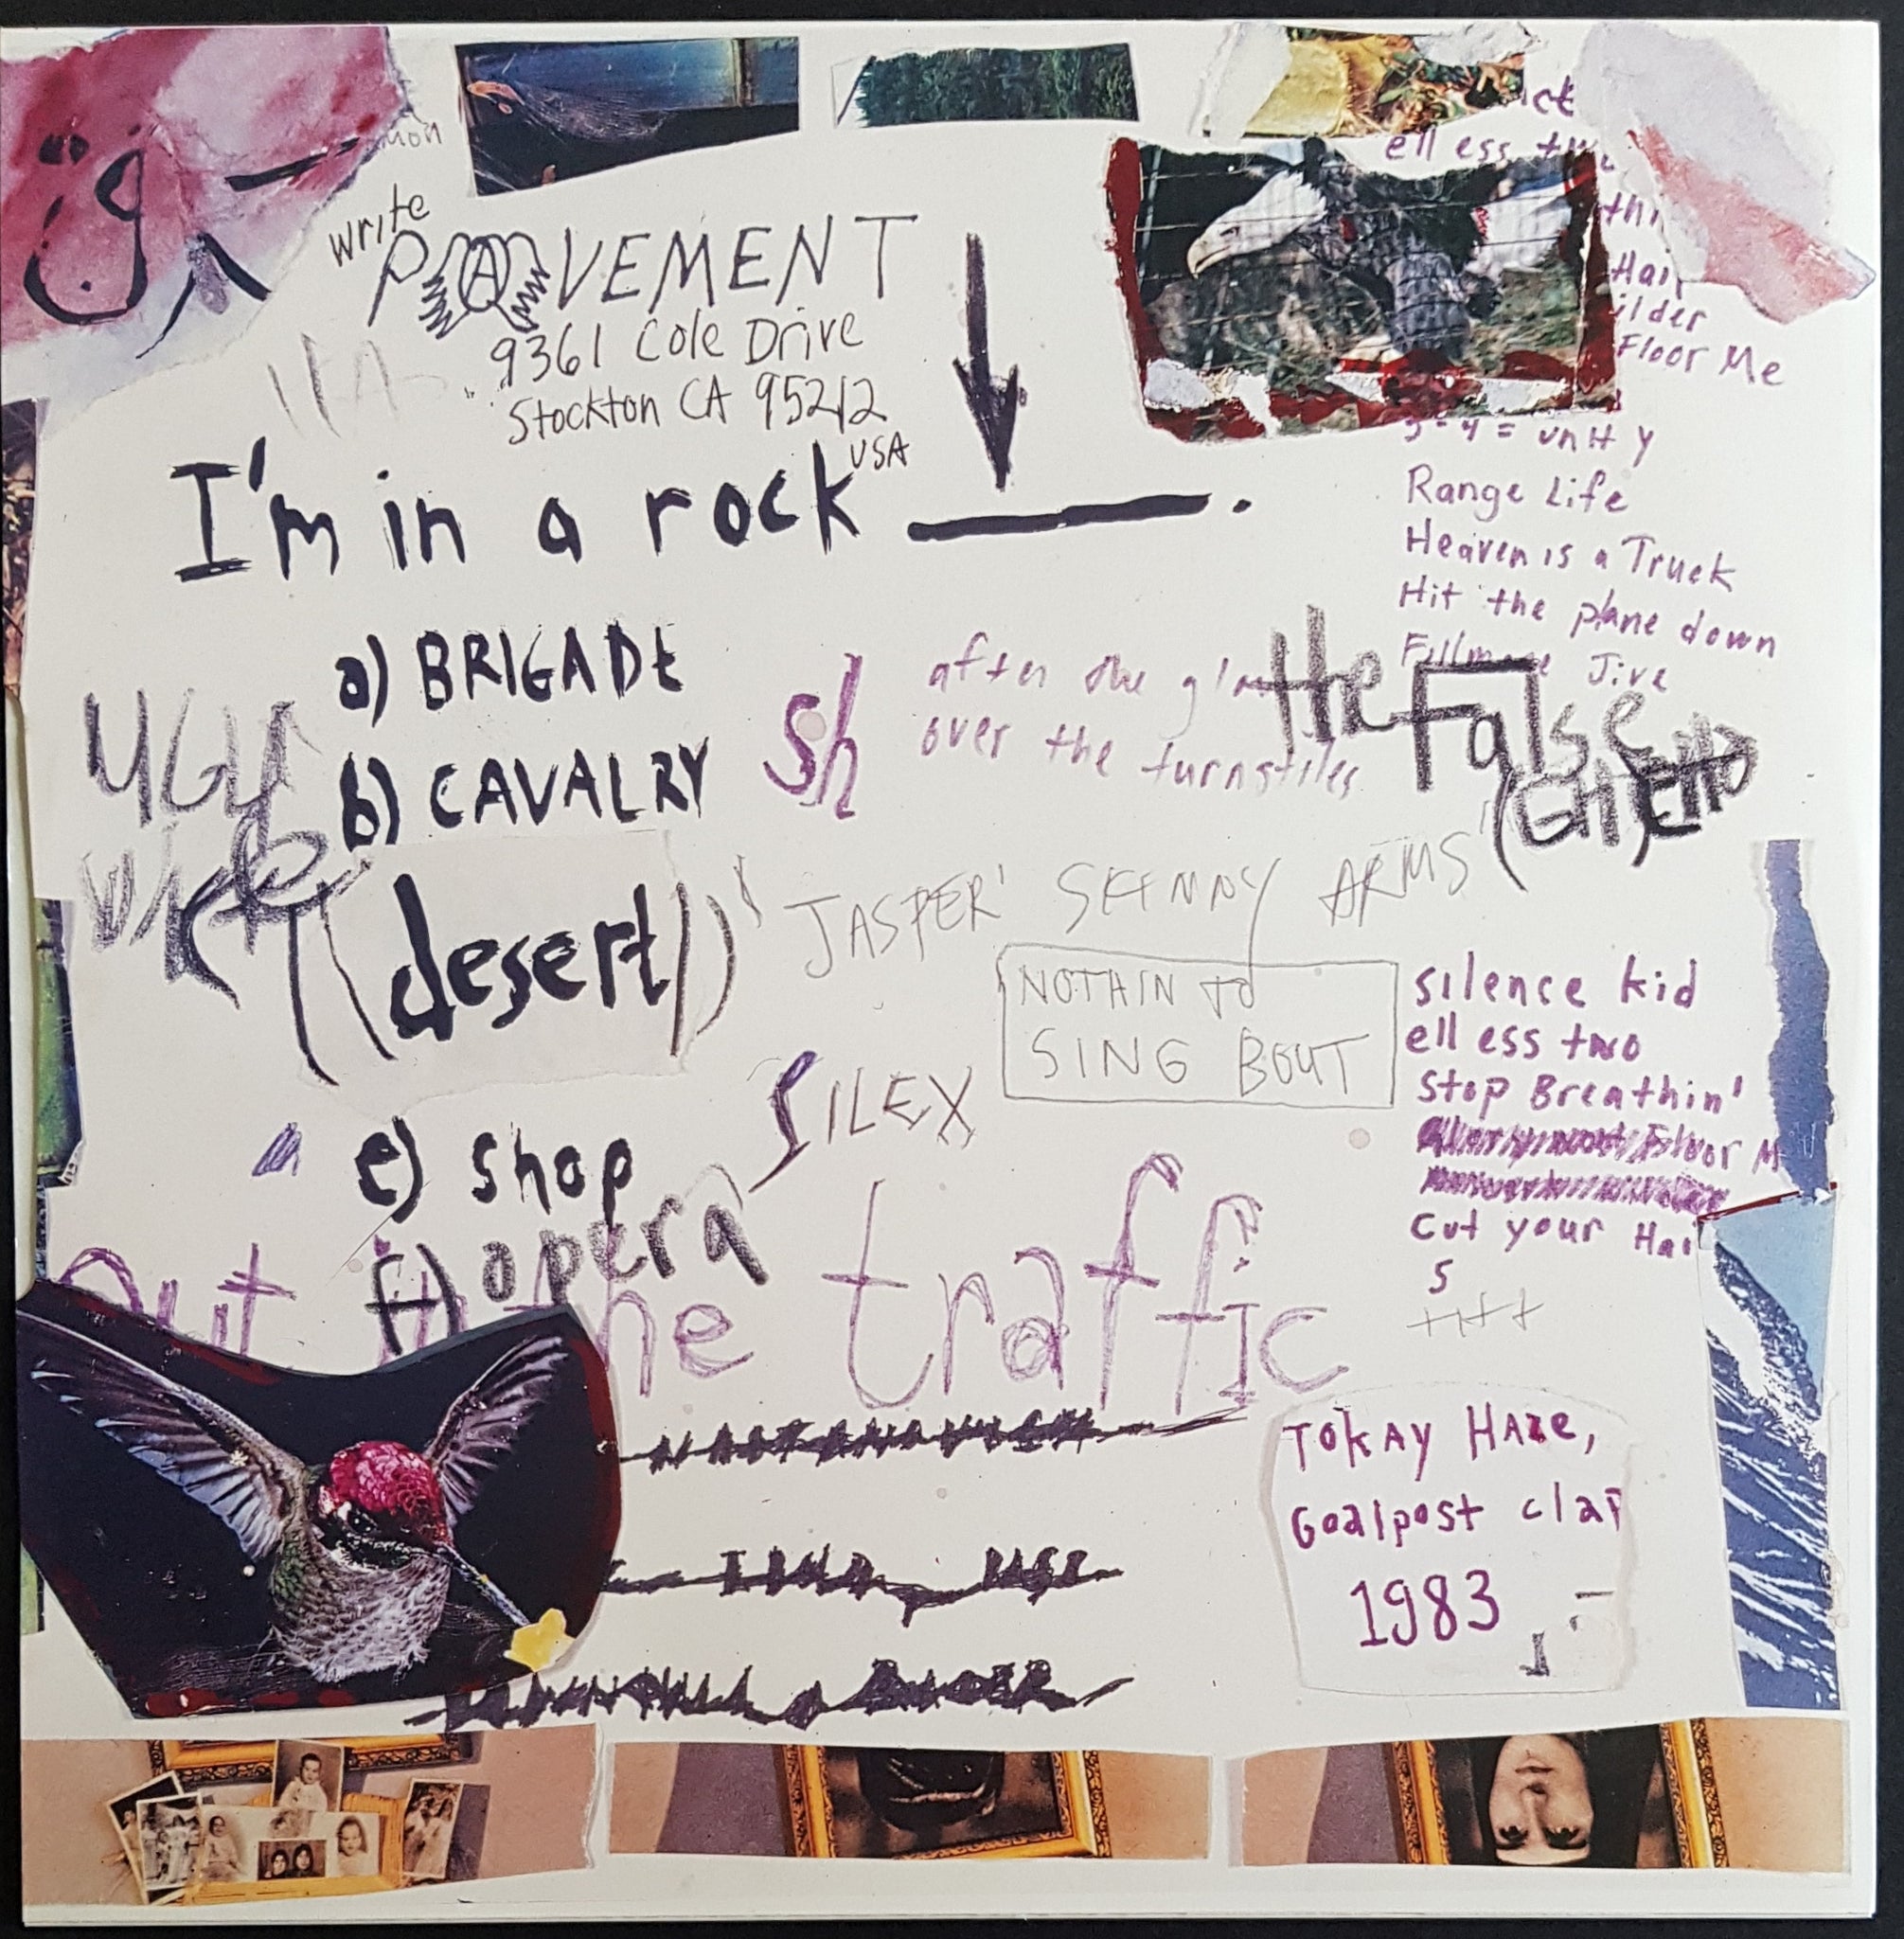 write
PAVEMENT
9361 Cole Drive
Stockton CA 95212
USA
I'm in a rock ____.
a) BRIGADE
b) CAVALRY
((desert))
e) shop
f) opera
UGLY
sh
after the
over the turnstiles
the false
(GHETTO
'JASPER' SKINNY ARMS'
NOTHIN TO
SING BOUT
SILEX
out the traffic
ell ess two
Hair
ilder
Floor Me
5-4 = unity
Range Life
Heaven is a Truck
Hit the plane down
Fillmore Jive
silence kid
ell ess two
Stop Breathin'
Floor M
Cut your Hai
S
++++
TOKAY HAZE,
Goalpost clap
1983